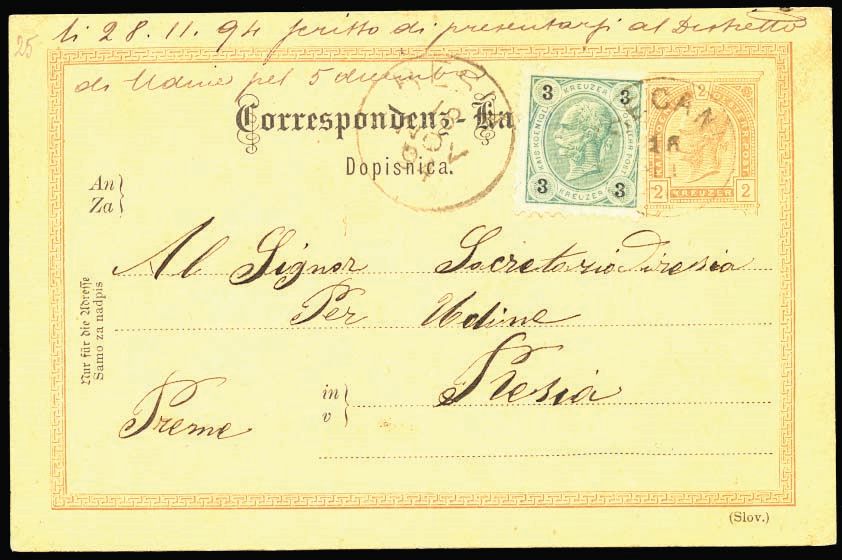 25
li 28.11.94 scritto di presentarsi al Distretto
di Udine pel 5 dicembre
Correspondenz-Ka
Dopisnica.
3 KREUZER 3
3 KREUZER 3
2
2 KREUZER 2
18
An
Za
Al Signor Secretario Diresia
Per Udine
in
v
Resia
Preme
Nur für die Adresse
Samo za nadpis
(Slov.)